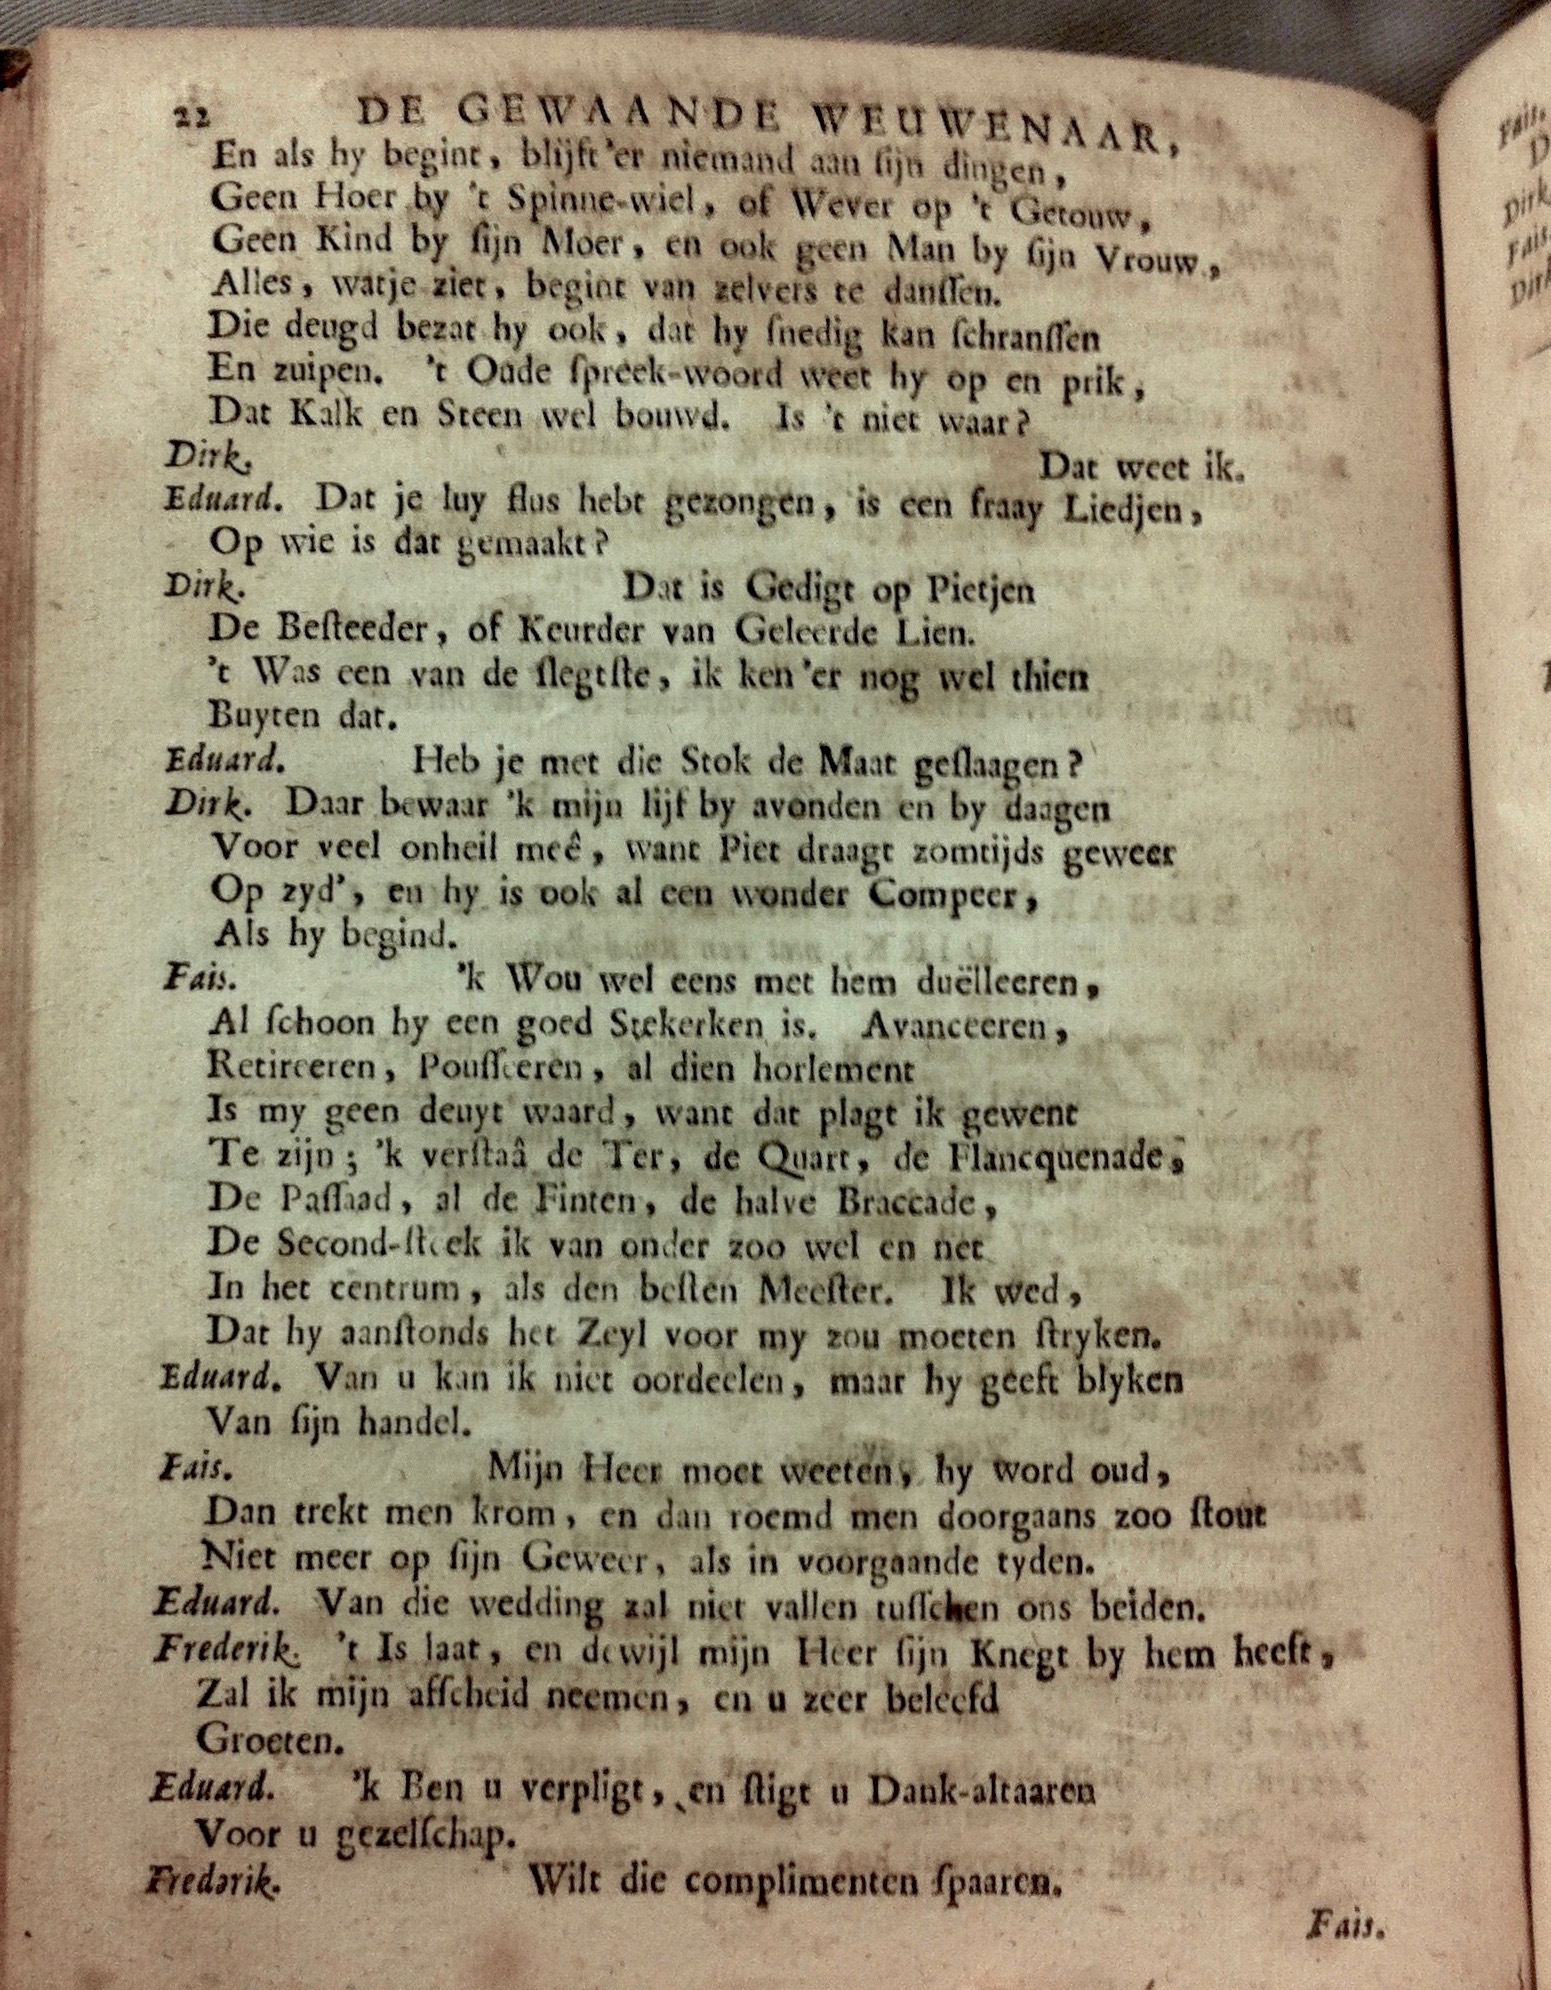 22 DE GEWAANDE WEUWENAAR,
En als hy begint, blijft'er niemand aan ſijn dingen,
Geen Hoer by 't Spinne-wiel, of Wever op 't Getouw,
Geen Kind by ſijn Moer, en ook geen Man by ſijn Vrouw,
Alles, watje ziet, begint van zelvers te danſſen.
Die deugd bezat hy ook, dat hy ſnedig kan ſchranſſen
En zuipen. 't Oude ſpreek-woord weet hy op en prik,
Dat Kalk en Steen wel bouwd. Is 't niet waar?
Dirk. Dat weet ik.
Eduard. Dat je luy flus hebt gezongen, is een fraay Liedjen,
Op wie is dat gemaakt?
Dirk. Dat is Gedigt op Pietjen
De Beſteeder, of Keurder van Geleerde Lien.
't Was een van de ſlegtſte, ik ken'er nog wel thien
Buyten dat.
Eduard. Heb je met die Stok de Maat geſlaagen?
Dirk. Daar bewaar 'k mijn lijf by avonden en by daagen
Voor veel onheil meê, want Piet draagt zomtijds geweer
Op zyd', en hy is ook al een wonder Compeer,
Als hy begind.
Fais. 'k Wou wel eens met hem duëlleeren,
Al ſchoon hy een goed Stekerken is. Avanceeren,
Retireeren, Pouſſeeren, al dien horlement
Is my geen deuyt waard, want dat plagt ik gewent
Te zijn; 'k verſtaâ de Ter, de Quart, de Flancquenade,
De Paſſaad, al de Finten, de halve Braccade,
De Second-ſteek ik van onder zoo wel en net
In het centrum, als den beſten Meeſter. Ik wed,
Dat hy aanſtonds het Zeyl voor my zou moeten ſtryken.
Eduard. Van u kan ik niet oordeelen, maar hy geeft blyken
Van ſijn handel.
Fais. Mijn Heer moet weeten, hy word oud,
Dan trekt men krom, en dan roemd men doorgaans zoo ſtout
Niet meer op ſijn Geweer, als in voorgaande tyden.
Eduard. Van die wedding zal niet vallen tuſſchen ons beiden.
Frederik. 't Is laat, en dewijl mijn Heer ſijn Knegt by hem heeft,
Zal ik mijn afſcheid neemen, en u zeer beleefd
Groeten.
Eduard. 'k Ben u verpligt, en ſtigt u Dank-altaaren
Voor u gezelſchap.
Frederik. Wilt die complimenten ſpaaren.
Fais.